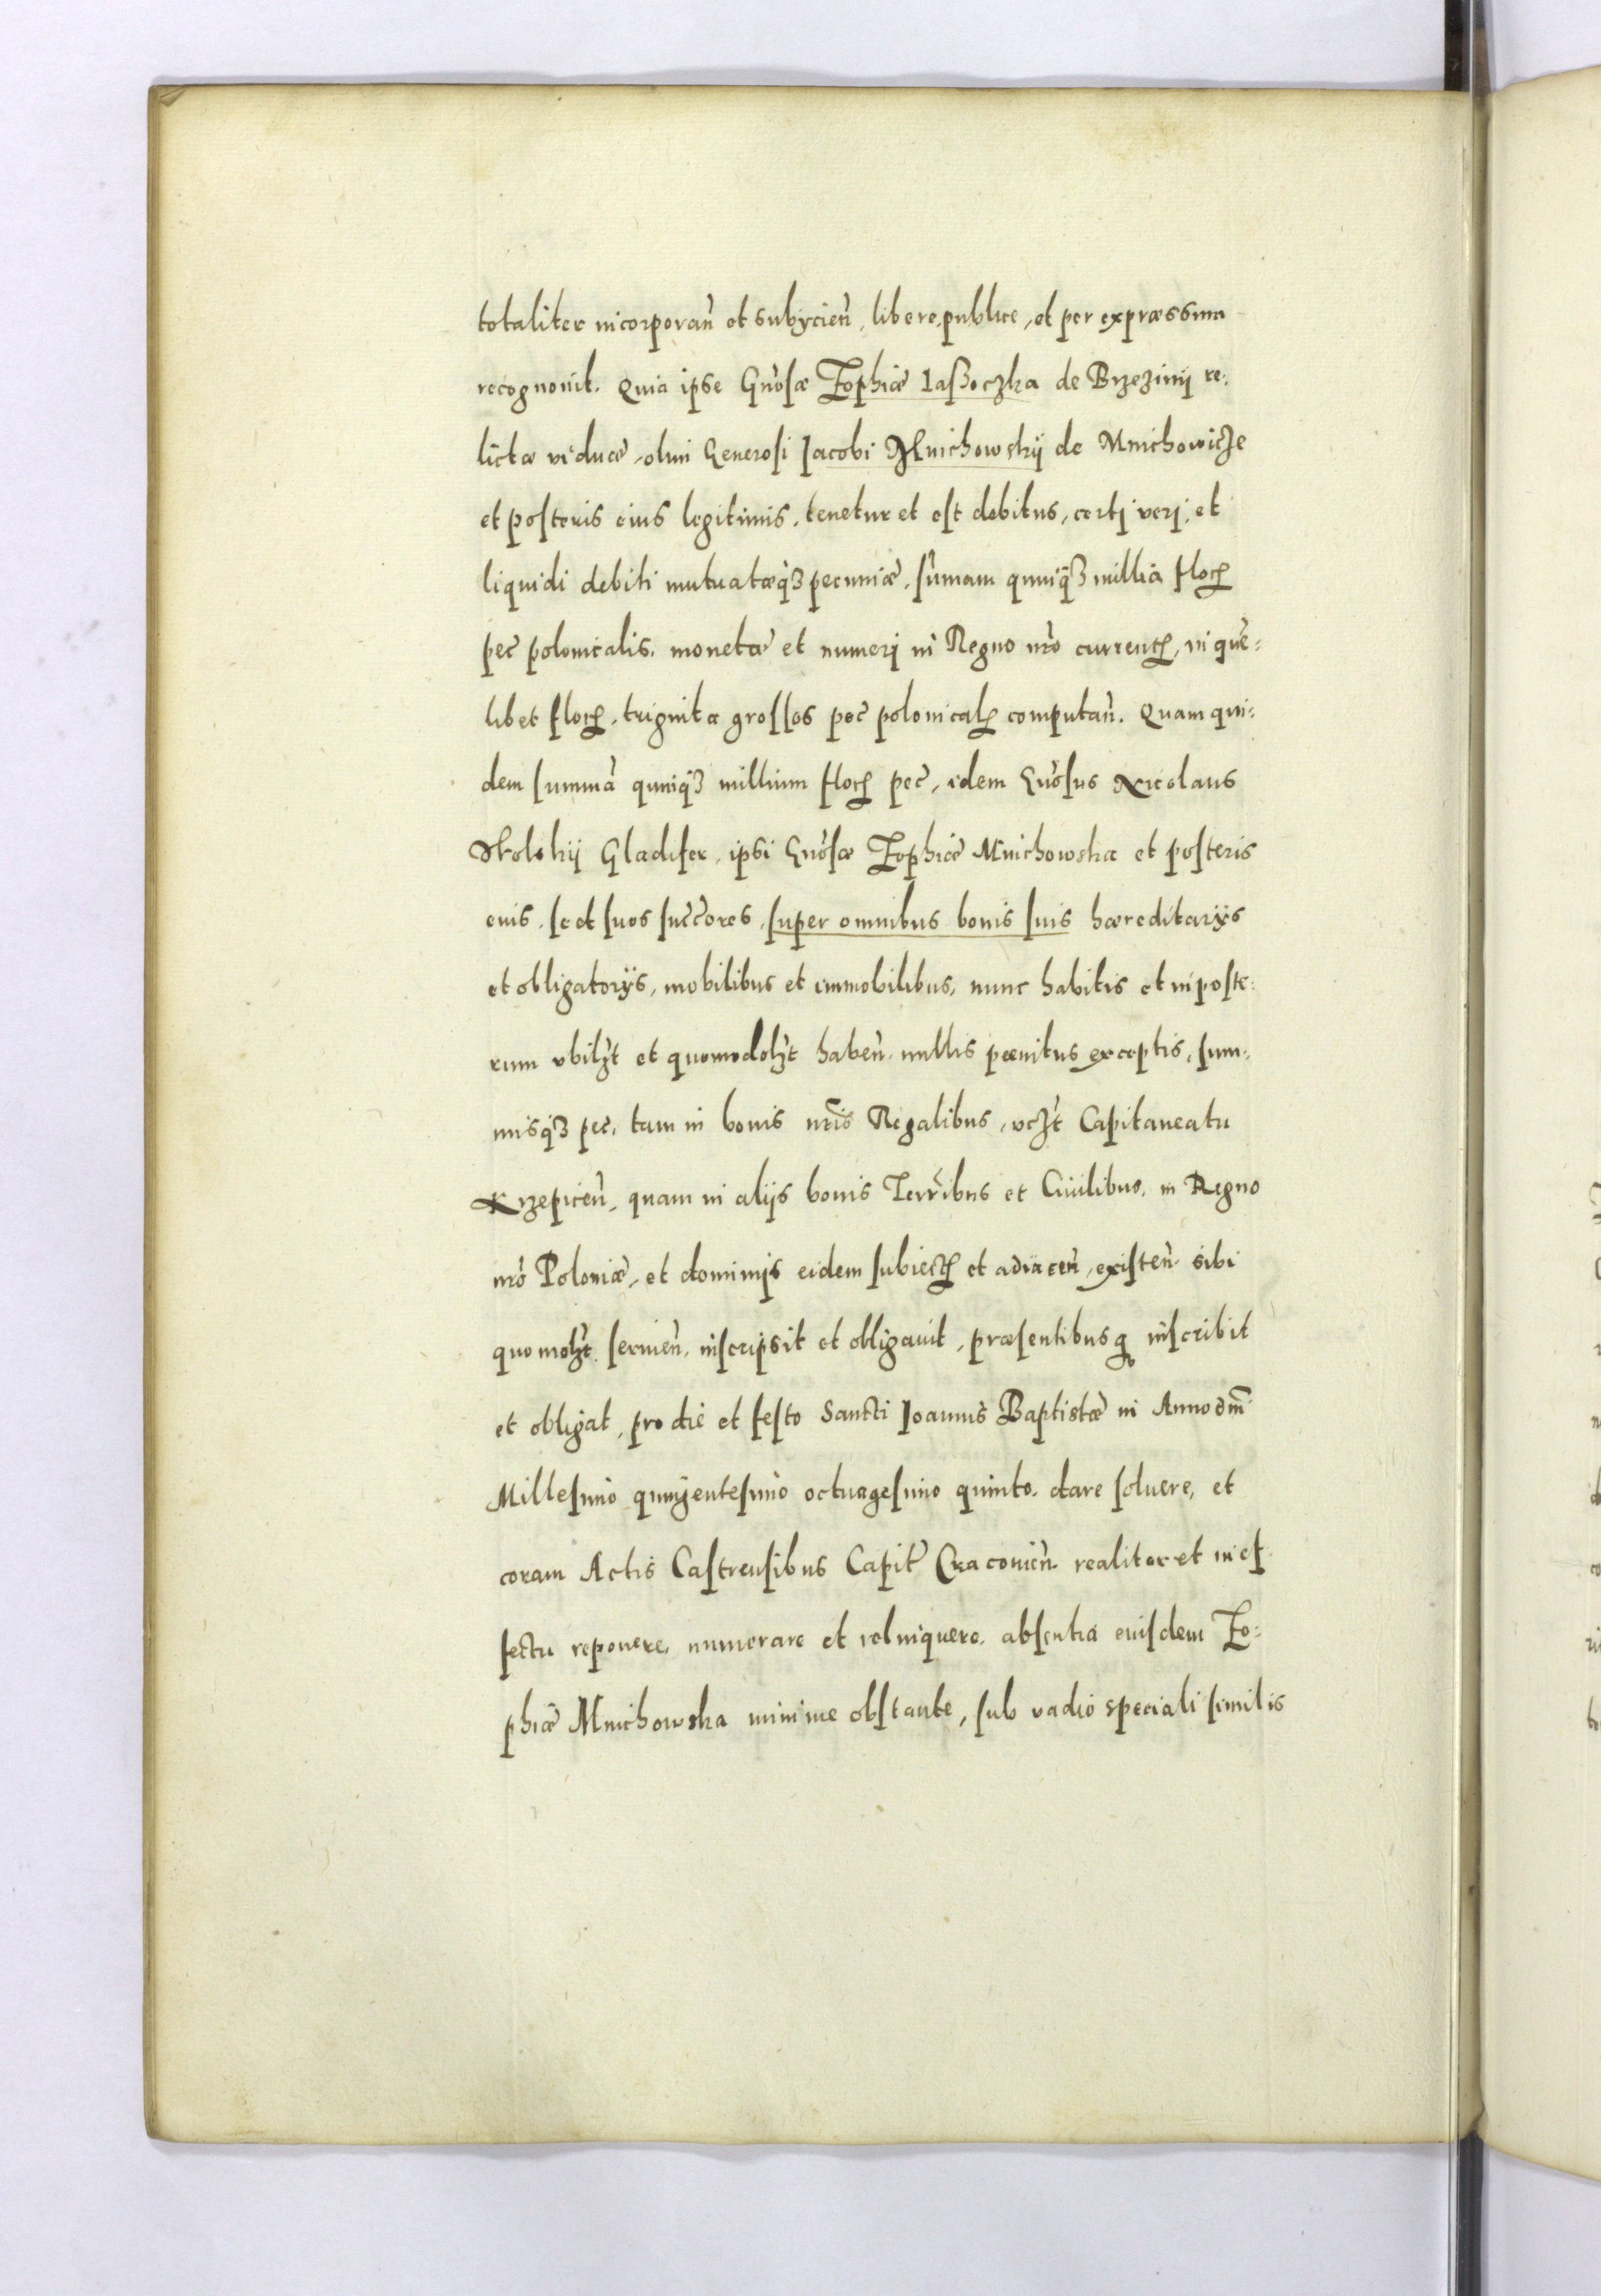 totaliter incorporan̄ et subijcien̄, libere, publice, et per expraessum
recognouit. Quia ipse Gn̄osæ Zophiæ Iaßoczka de Brzezinij re:
lictæ viduæ, olim Generosi Jacobi Mnichowskij de Mnichowicze
et posteris eius legitimis, tenetur et est debitus, certj verj, et
liquidi debiti mutuatæq3 pecuniæ, sūmam quinq3 millia floꝝ
pec̄ polonicalis, monetæ et numerj in Regno nr̄o currentꝭ, in que:
libet floꝝ, triginta grossos pec̄ polonicalꝭ computan̄. Quam qui:
dem summā quinq3 millium floꝝ pec̄, idem Gn̄osus Nicolaus
Wolskij Gladifer, ipsi Gn̄osæ Zophiæ Mnichowska et posteris
euis, se et suos succ̄ores, super omnibus bonis suis hæreditarijs
et obligatorijs, mobilibus et immobilibus, nunc habitis et in poste:
rum vbilꝫt et quomodolꝫt haben̄, nullis pœnitus exceptis, sum:
misq3 pec̄, tam in bonis nr̄is Regalibus, vcꝫt Capitaneatu
Krzepicen̄, quam in alijs bonis Terr̄ibus et Ciuilibus, in Regno
nr̄o Poloniæ, et dominijs eidem subiectꝭ et adiacen̄, existen̄ sibi
quomolꝫt seruien̄, inscripsit et obligauit, præsentibusq3 inscribit
et obligat, pro die et festo Sancti Joannis Baptistæ in Anno dn̄i
Millesimo quingentesimo octuagesimo quinto, dare soluere, et
coram Actis Castrensibus Capit̄ Cracouien̄ realiter et in ef:
fectu reponere, numerare et relinquere, absentia euisdem Zo:
phiæ Mnichowska minime obstante, sub vadio speciali similis